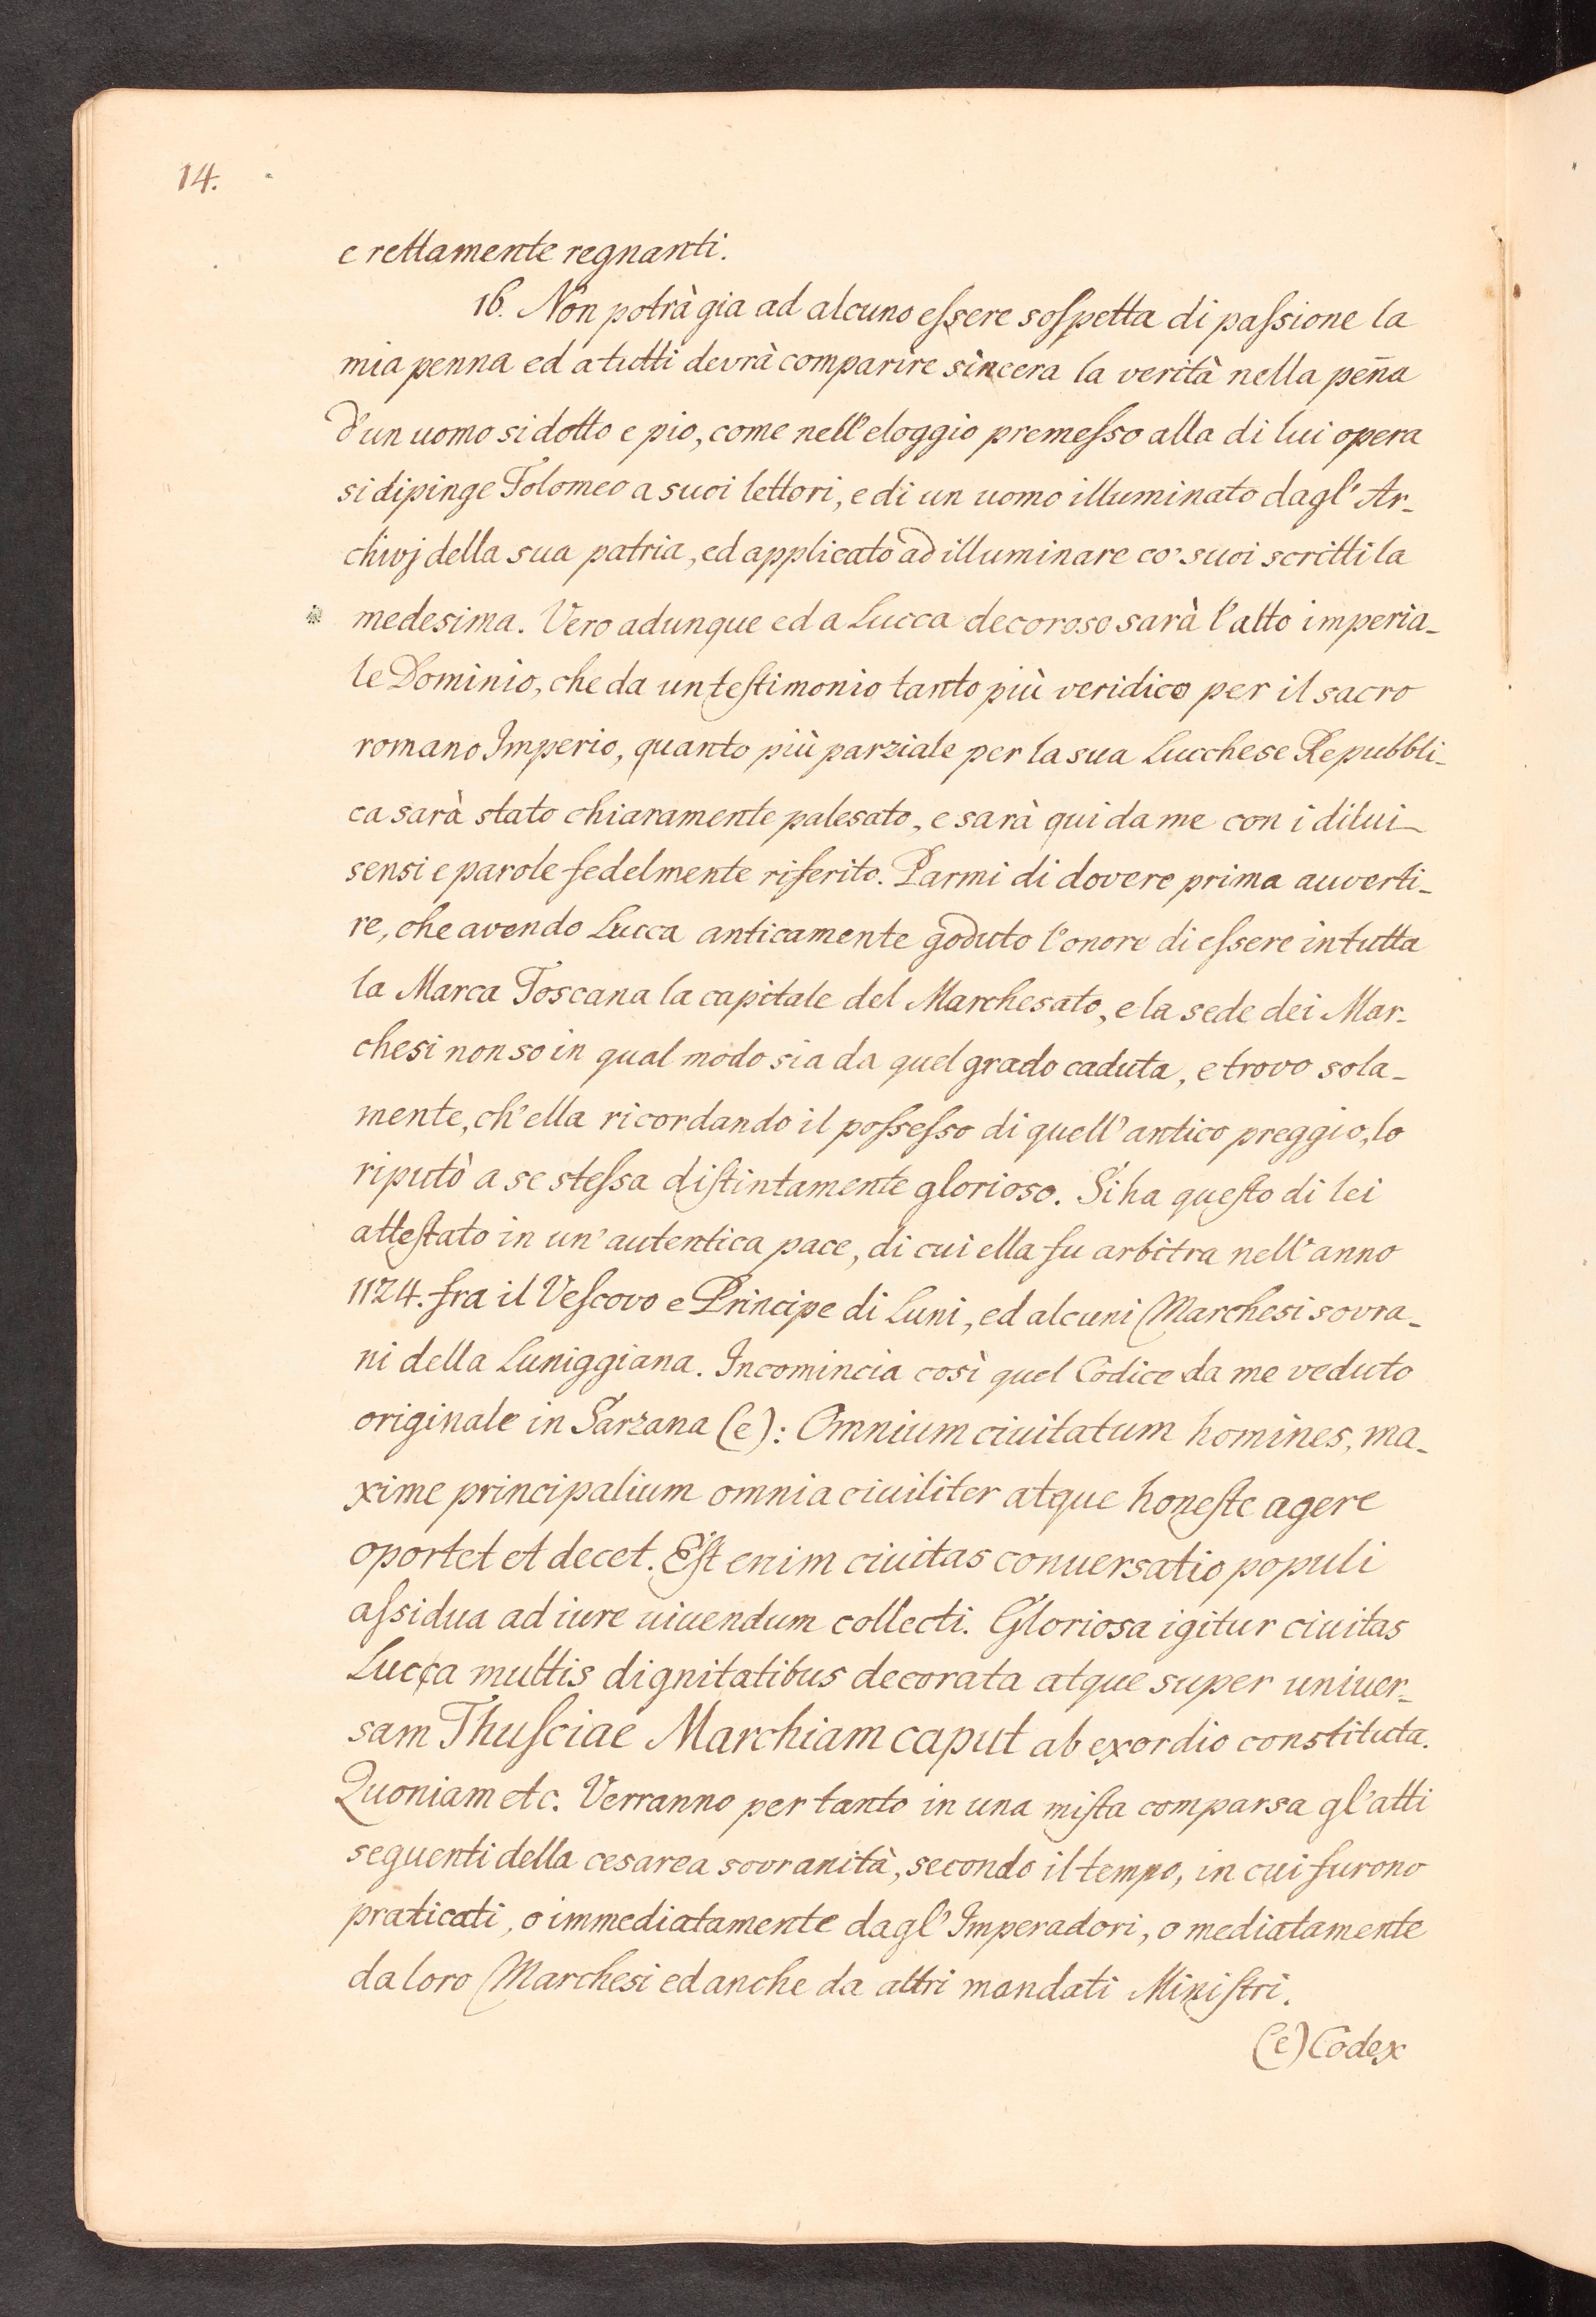 14.
e rettamente regnanti.
16. Non potrà gia ad alcuno eſsere soſpetta di paſsione la
mia penna ed a tutti devrà comparire sincera la verità nella pen̄a
d'un uomo si dotto e pio, come nell'eloggio premeſso alla di lui opera
si dipinge Tolomeo a suoi lettori, e di un uomo illuminato dagl' Ar-
chivj della sua patria, ed applicato ad illuminare co' suoi scritti la
medesima. Vero adunque ed a Lucca decoroso sarà l'alto imperia-
le Dominio, che da un teſtimonio tanto più veridico per il sacro
romano Imperio, quanto più parziale per la sua Lucchese Repubbli-
ca sarà stato chiaramente palesato, e sarà qui da me con i di lui
sensi e parole fedelmente riferito. Parmi di dovere prima auverti-
re, che avendo Lucca anticamente goduto l'onore di eſsere in tutta
la Marca Toscana la capitale del Marchesato, e la sede dei Mar-
chesi non so in qual modo sia da quel grado caduta, e trovo sola-
mente, ch'ella ricordando il poſseſso di quell'antico preggio, lo
riputò a se steſsa diſtintamente glorioso. Si ha queſto di lei
atteſtato in un'autentica pace, di cui ella fu arbitra nell'anno
1124. fra il Veſcovo e Principe di Luni, ed alcuni Marchesi sovra-
ni della Luniggiana. Incomincia così quel Codice da me veduto
originale in Sarzana (e): Omnium ciuitatum homines, ma-
xime principalium omnia ciuiliter atque honeſte agere
oportet et decet. Eſt enim ciuitas conuersatio populi
aſsidua ad iure uiuendum collecti. Gloriosa igitur ciuitas
Lucca multis dignitatibus decorata atque super uniuer-
sam Thuſciae Marchiam caput ab exordio constituta.
Quoniam etc. Verranno per tanto in una miſta comparsa gl'atti
seguenti della cesarea sovranità, secondo il tempo, in cui furono
praticati, o immediatamente dagl' Imperadori, o mediatamente
da loro Marchesi ed anche da altri mandati Miniſtri.
(e) Codex